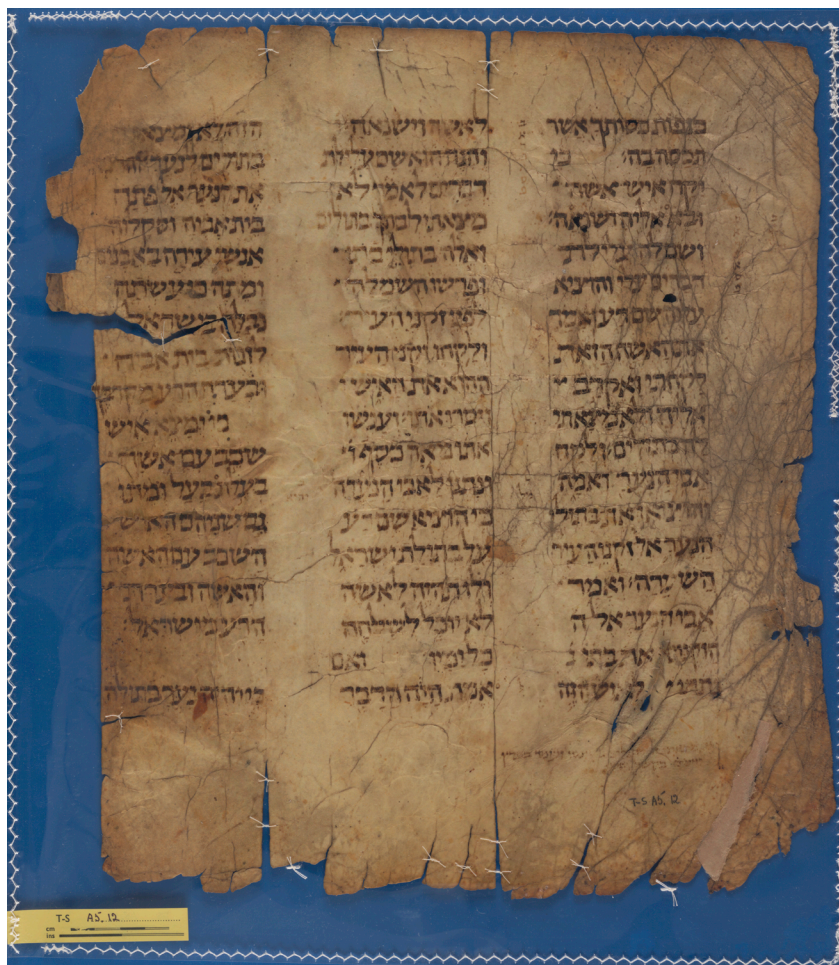 כנפות כסותך אשר
תכסה בה כי
יקח איש אשה
ובא אליה ושנאה
ושם לה עלילת
דברים
עליה שם רע ואמר
את האשה הזאת
לקחתי ואקרב
אליה ולא מצאתי
לה בתולים ולקח
אבי הנער ואמה
והוציאו את בתולי
הנער אל זקני העיר
השערה ואמר
אבי הנער אל ה
הזקנים את בתי נ
נתתי לאיש הזה
לאשה וישנאה
והנה הוא שם עלילת
דברים לאמר לא
מצאתי לבתך בתולים
ואלה בתולי בתי
ופרשו השמלה
לפני זקני העיר
ולקחו זקני העיר
ההוא את האיש
ויסרו אתו וענשו
אתו מאה כסף ו
ונתנו לאבי הנערה
כי הוציא שם רע
על בתולת ישראל
ולו תהיה לאשה
לא יוכל לשלחה
כל ימיו ואם
אמת היה הדבר
הזה לא נמצאו
בתולים לנער
את הנער אל פתח
בית אביה וסקלוה
אנשי עירה באבנים
ומתה כי עשתה
נבלה בישראל
לזנות בית אביה
ובערת הרע מקרבך
כי ימצא איש
שכב עם אשה
בעלת בעל ומתו
גם שניהם האיש
השכב עם האשה
והאשה ובערת
הרע מישראל
כי יהיה נער בתולה
T-S A5.12
T-S A5.12
cm
ins